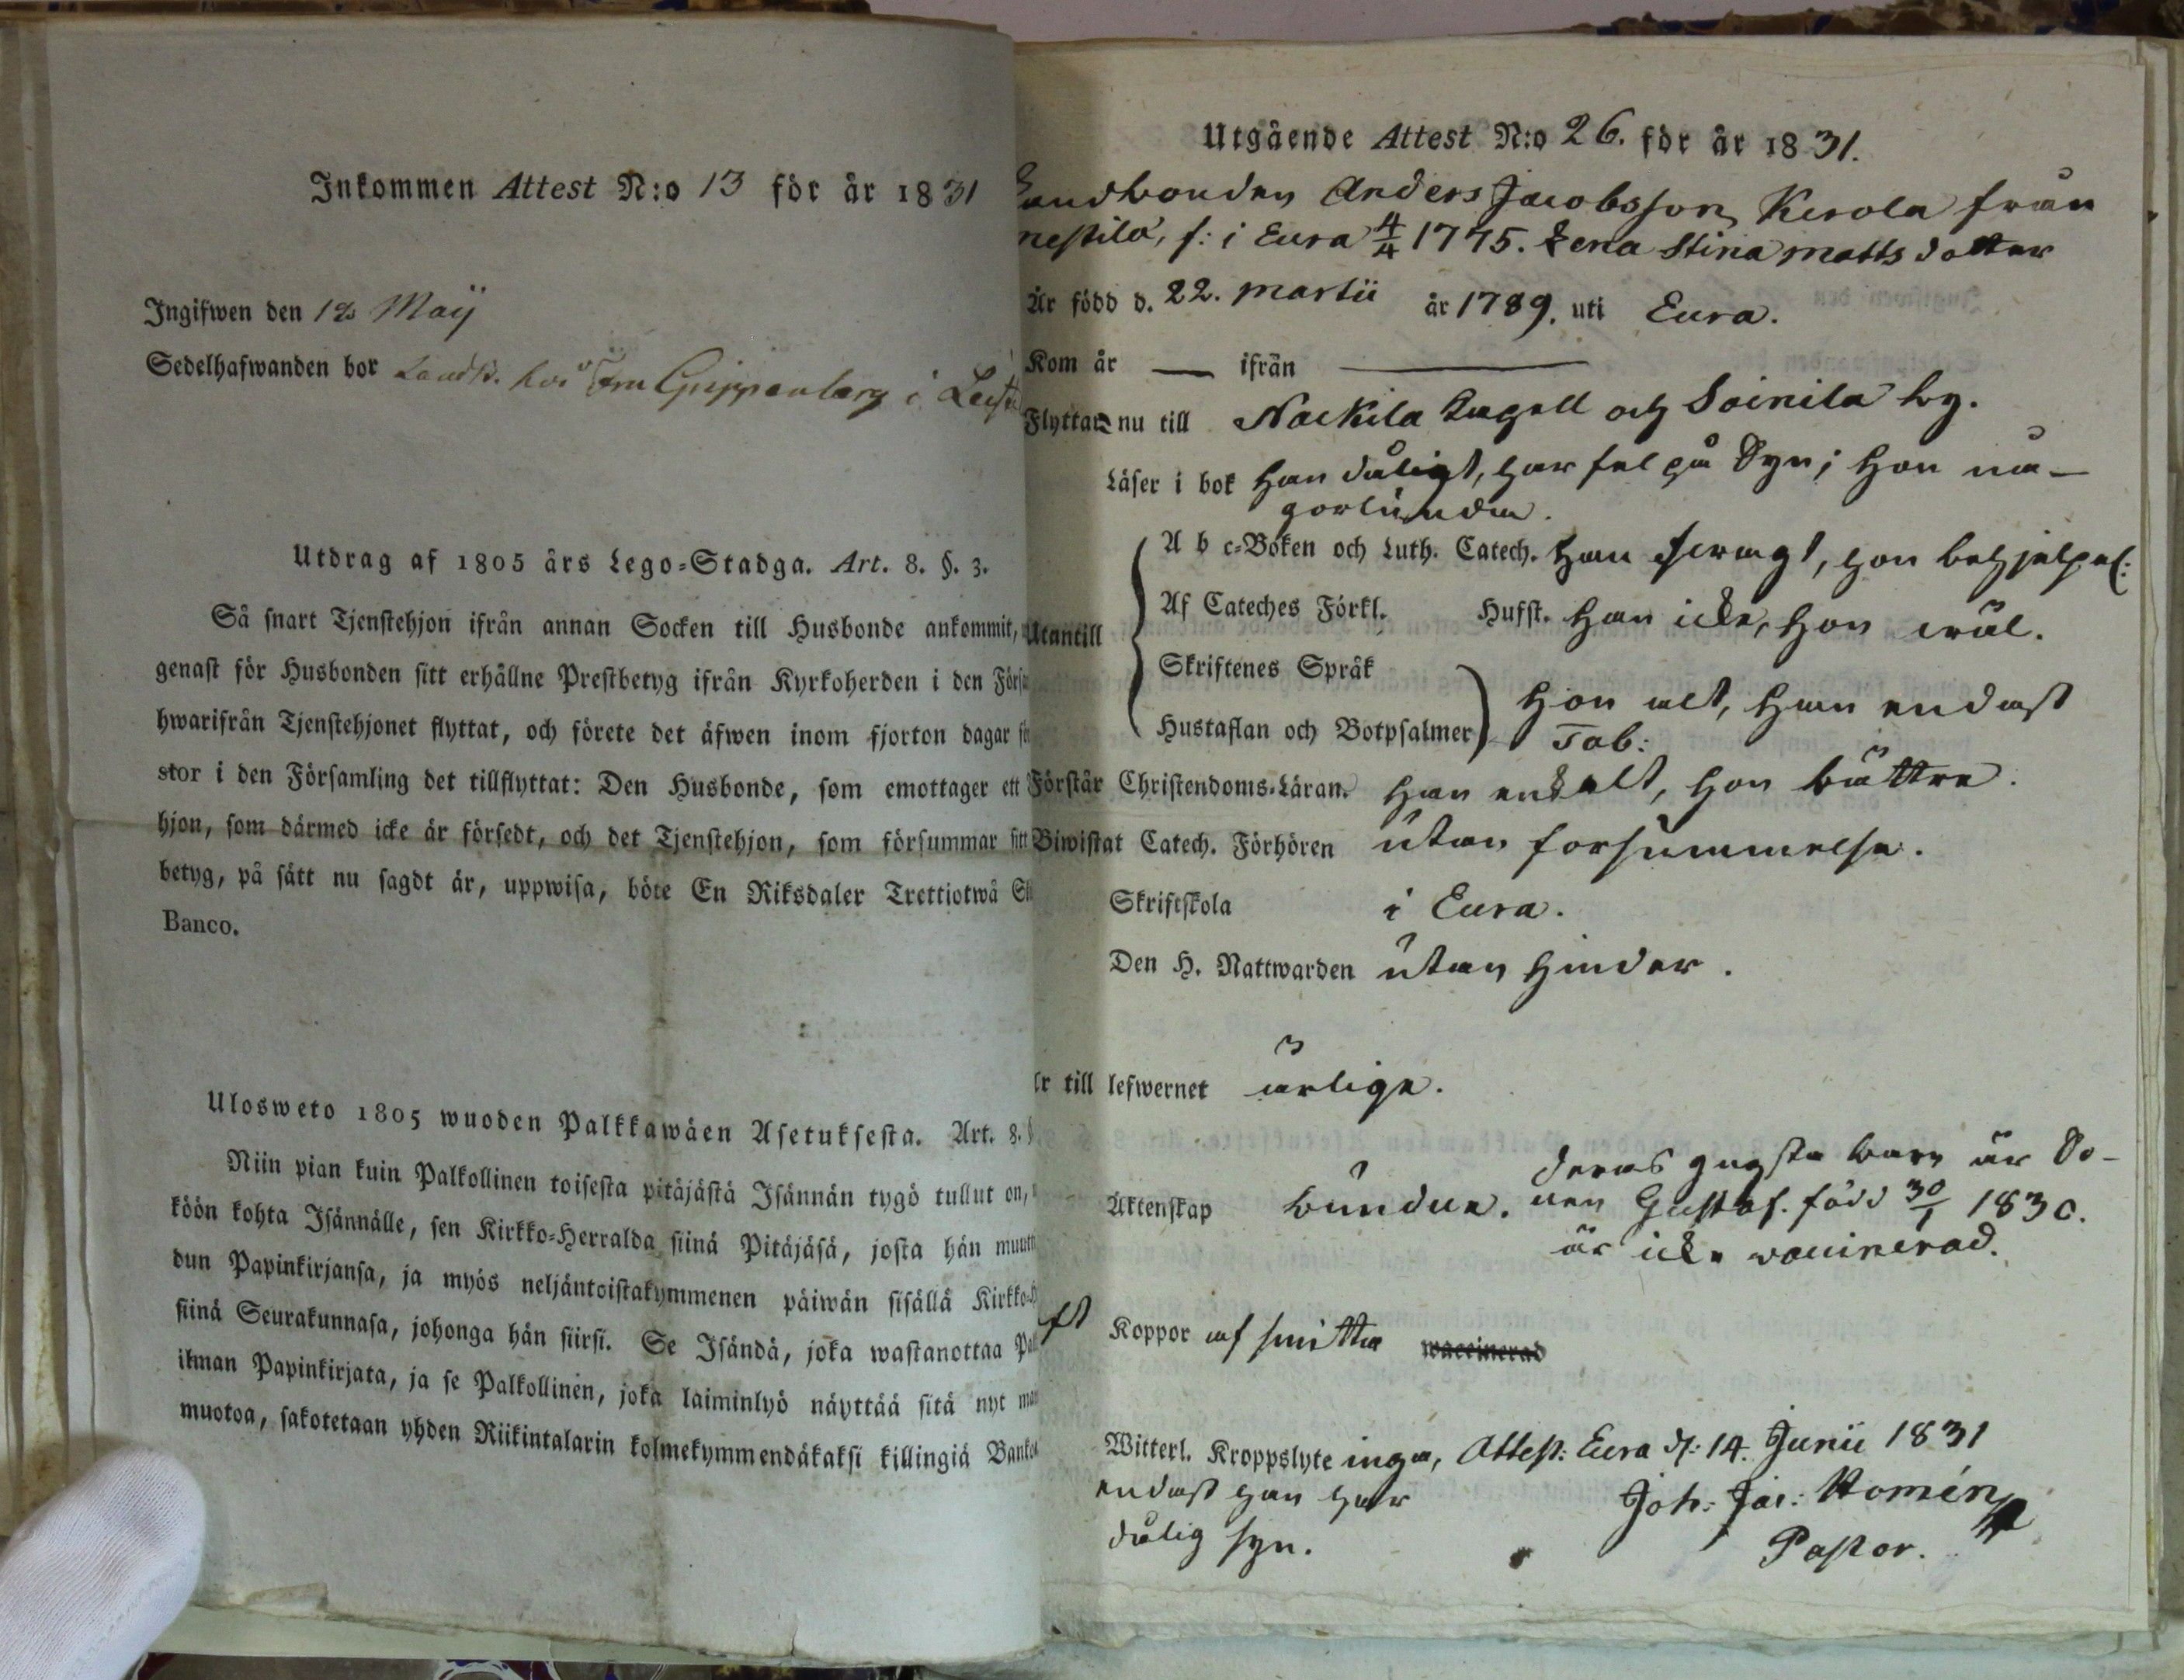 Inkommen Attest N:o 13 för år 1831
Ingifwen den 12 Maij
Sedelhafwanden bor Landb. hos Fru Grippenberg i
Utdrag af 1805 års Lego-Stadga. Art. 8. §. 3.
Så snart Tjenstehjon ifrån annan Socken till Husbonde ankommit,
genast för Husbonden sitt erhållne Prestbetyg ifrån Kyrkoherden i den
hwarifrån Tjenstehjonet flyttat, och förete det äfwen inom fjorton dagar
stor i den Församling det tillflyttat: Den Husbonde, som emottager ett
hjon, som därmed icke är försedt, och det Tjenstehjon, som försummar sitt
betyg, på sätt nu sagdt är, uppwisa, böte En Riksdaler Trettiotwå
Banco.
Ulosweto 1805 wuoden Palkkawäen Asetuksesta. Art. 8.
Niin pian kuin Palkollinen toisesta pitäjästä Isännän tygö tullut on,
köön kohta Isännälle, sen Kirkko-Herralda siinä Pitäjäsä, josta hän
dun Papinkirjansa, ja myös neljäntoistakymmenen päiwän sisällä
siinä Seurakunnasa, johonga hän siirsi. Se Isändä, joka wastanottaa
ilman Papinkirjata, ja se Palkollinen, joka laiminlyö näyttää sitä nyt
muotoa, sakotetaan yhden Riikintalarin kolmekymmendäkaksi killingiä
Utgående Attest N:o 26. för år 1831.
Landbonden Anders Jacobsson Kerola från
nestilä, f: i Eura 4/4 1775. Lena Stina Mattsdotter
Är född d. 22. Martii år 1789. uti Eura.
Kom år — ifrån —
Flyttar nu till Nackila Capell och Soinila by.
Läser i bok Han dåligt, har fel på Syn; Hon nå-
gorlunda.
A b c-Boken och Luth. Catech. Han swagt, hon behjelpel:
Af Cateches Förkl. Husst. Han icke, Hon wäl.
Utantill
Skriftenes Språk
Hustaflan och Botpsalmer Hon alt, Han endast
Tab:
Förstår Christendoms-Läran. Han enkelt, Hon bättre.
Biwistat Catech. Förhören utan försummelse.
Skriftskola i Eura.
Den H. Nattwarden utan hinder.
Är till lefwernet ärlige.
deras yngsta barn är So-
Äktenskap bundne. nen Gustaf. född 30/1 1830.
är icke vaccinerad.
Koppor af smitta waccinerad
Witterl. Kroppslyte inga, Attest: Eura d: 14. Junii 1831
endast han har Joh: Jac: Homén
dålig syn. Pastor.